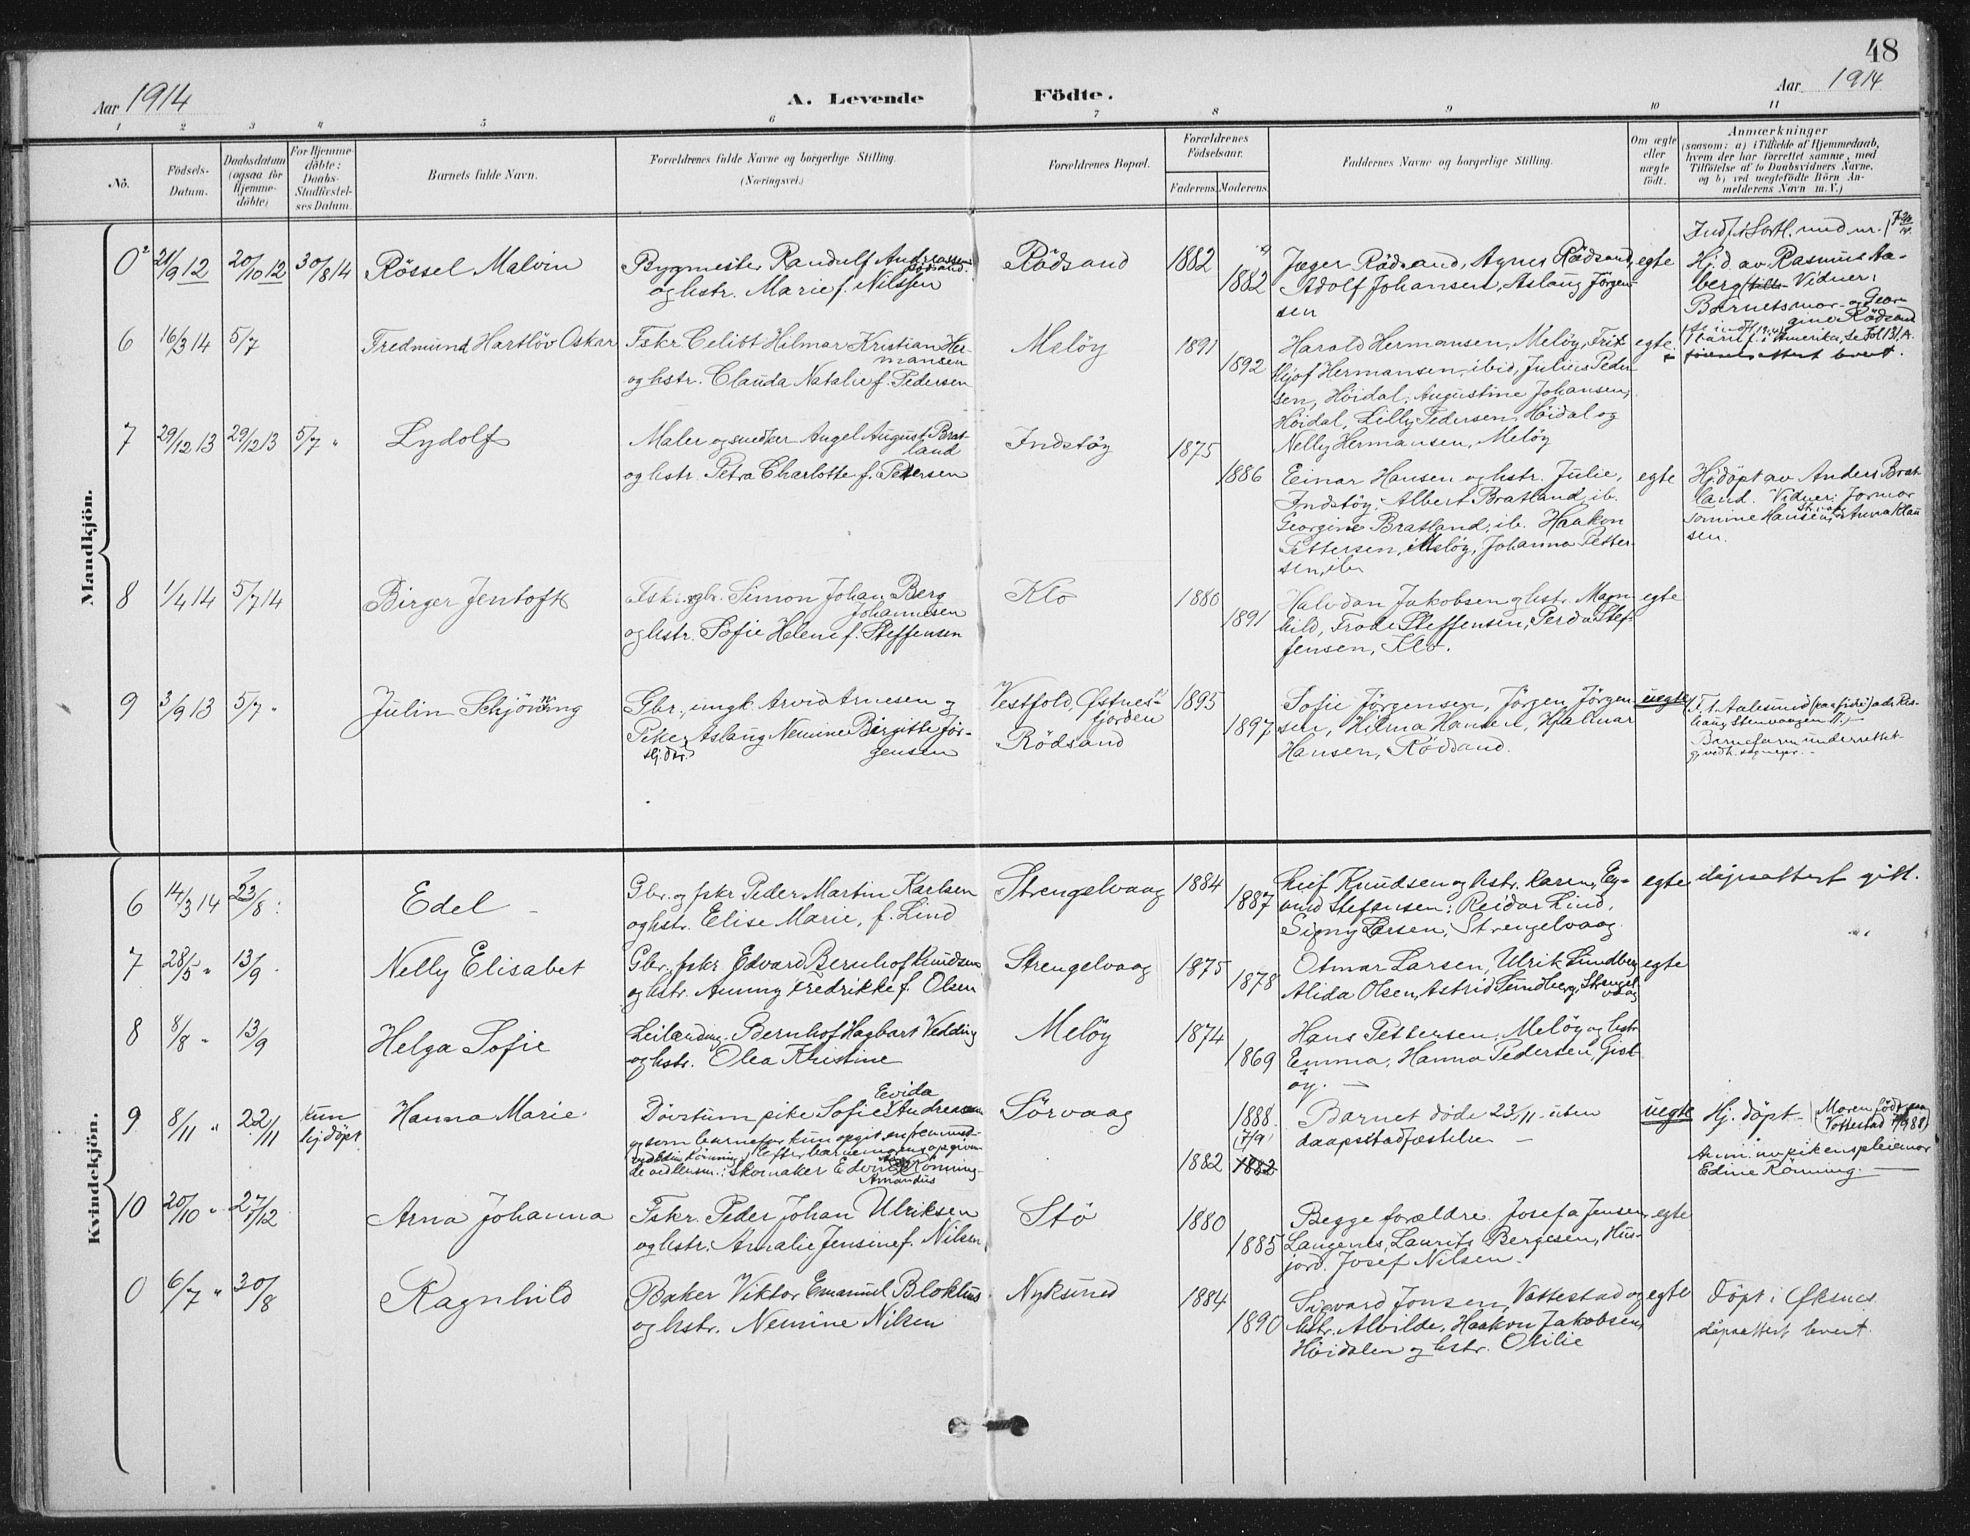 48
Aar 1914
A. Levende Fødte.
Aar 1914
1 2 3 4 5 6 7 8 9 10 11
No.
Födsels-Datum.
Daabsdatum (ogsaa for Hjemme-döbte)
For Hjemme-döbte: Daabs-Stadfæstel-ses Datum.
Barnets fulde Navn.
Forældrenes fulde Navne og borgerlige Stilling.
(Næringsvei.)
Forældrenes Bopæl.
Forældrenes Födselsaar.
Faderens. Moderens.
Faddernes Navne og borgerlige Stilling.
Om ægte eller uægte födt.
Anmærkninger
(saasom: a) i Tilfælde af Hjemmedaab,
hvem der har forrettet samme, med
Tilföielse af to Daabsvidners Navne,
og b) ved uægtefödte Börn An-
melderens Navn m. V.)
Mandkjön.
0² 21/9 12 20/10 12 30/8 14 Røssel Malvin
Bygmester Randulf Andreassen
og hstr. Marie f. Nilssen
Rødsand 1882 1882
Jæger Rødsand, Agnes Rødsand,
Adolf Johansen, Aslaug Jørgen-
sen
egte
Hj.d. av Rasmus Aa-
berg Vidner:
Barnetsmor og Geor-
gine Rødsand
6 16/3 14 5/7 Fredmund Hartløv Oskar
Fskr. Celibt Hilmar Kristian Her-
mansen
og hstr. Clauda Natalie f. Pedersen
Meløy 1891 1892
Harald Hermansen, Meløy, Frit-
hjof Hermansen, ibid, Julius Peder-
sen, Høidal, Augustine Johansen,
Høidal, Lilly Pedersen, Høidal og
Nelly Hermansen, Meløy
egte
7 29/12 13 29/12 13 5/7 " Lydolf
Maler og snedker Angel August Brat-
land
og hstr. Petra Charlotte f. Petersen
Indstøy 1875 1886
Einar Hansen og hstr. Julie,
Indstøy; Albert Bratland, ib.
Georgine Bratland, ib. Haakon
Pettersen, Meløy, Johanna Petter-
sen, ib.
egte
Hj.døpt av Anders Brat-
land. Vidner: Jormor
Hansen, Anna Klau
sen.
8 1/4 14 5/7 14 Birger Jentoft
Fskr. gbr. Simon Johan Berg
Johannesen
og hstr. Sofie Helene f. Steffensen
Klo 1880 1891
Halvdan Jakobsen og hstr. Magn-
hild, Frode Steffensen, Perda Stef-
fensen, Klo.
egte
9 3/9 13 5/7 " Julin Schjønning
Gbr., ungk. Arvid Arnesen og
Pike Aslaug Nemine Birgitte Jør-
gensen
Vestfold, Østnes-
fjorden
Rødsand
1895 1897
Sofie Jørgensen, Jørgen Jørgen-
sen, Hilma Hansen, Hjalmar
Hansen, Rødsand.
uegte
Kvindekjön.
6 14/3 14 23/8 : Edel -
Gbr. og fskr. Peder Martin Karlsen
og hstr. Elise Marie, f. Lind
Strengelvaag 1884 1887
Leif Knudsen og hstr. Karen, Ey-
vind Stefensen; Reidar Lind,
Signy Larsen, Strengelvaag
egte døpsattest gitt.
7 28/5 " 13/9 . Nelly Elisabet
Gbr., fskr. Edvard Bernhof Knudsen
og hstr. Aminny Fredrikke f. Olsen
Strengelvaag 1875 1878
Otmar Larsen, Ulrik Sundberg
Alida Olsen, Astrid Sundberg, Strengel-
vaag
egte
8 8/8 " 13/9 Helga Sofie
Leilænding. Bernhof Hagbart Vedding
og hstr. Olea Kristine
Meløy 1874 1869
Hans Pettersen, Meløy og hstr.
Emma, Hanna Pedersen, Gist-
øy. -
9 8/11 " 22/11 kun hj.døpt Hanna Marie
Døvstum pike Sofie Evida Andreassen
Sørvaag 1888 (7/9) 1882 1882
Barnet døde 23/11 uten
daapsstadfæstelse -
uegte
Hj. døpt - (Moren født paa
Vottestad 7/9 88)
Anm. av pikens pleiemor
Edine Röning. -
10 20/10 " 27/12 Arna Johanna
Fskr. Peder Johan Ulriksen
og hstr. Amalie Jensine f. Nilsen
Stø 1880 1885
Begge forældre. Josefa Jensen,
Langenes, Laurits Bergesen, Hus-
jord. Josef Nilsen.
egte
0 6/7 " 30/8 Ragnhild
Baker Viktor Emanuel Bloklus
og hstr. Nemine Nilsen
Nyksund 1884 1890
Sigvard Jonsen, Vottestad og
hstr. Alvilde, Haakon Jakobsen,
Høidalen og hstr. Otilie
egte
Døpt i Øksnes
døpsattest levert.